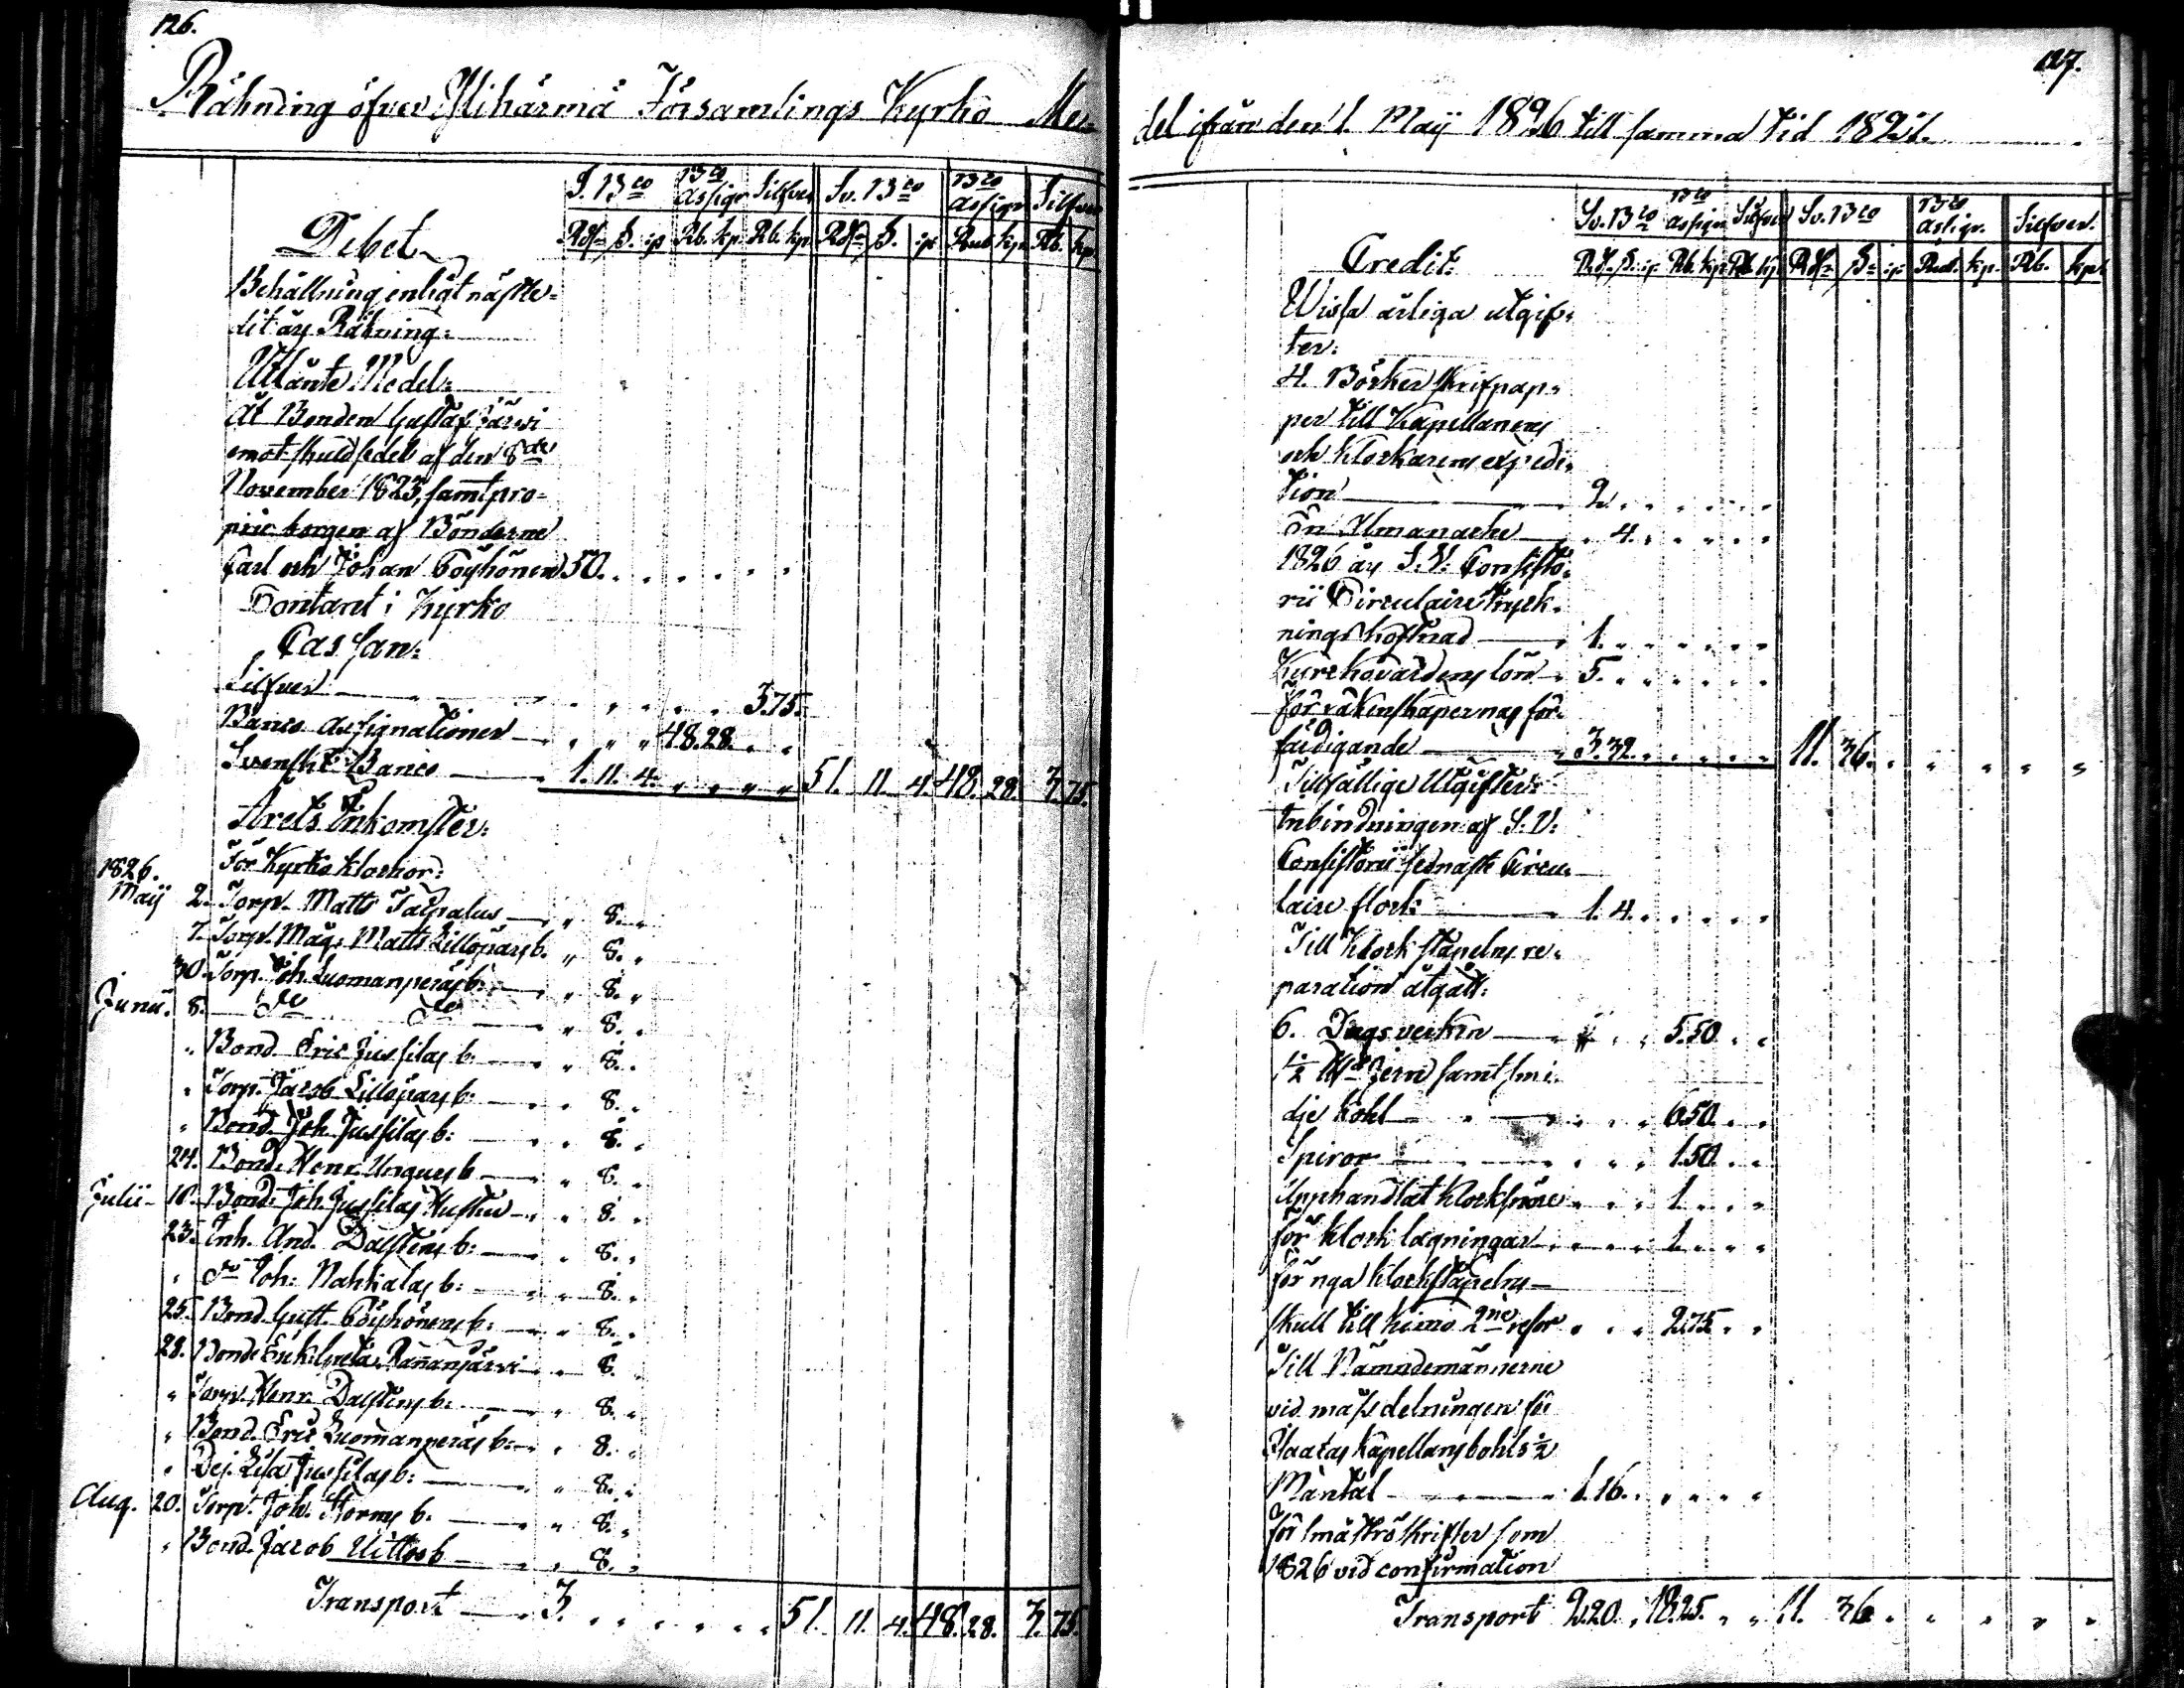 126.
Räkning öfver Ylihärmä Församlings Kyrko Me-
S. Bco Bco Assign Silfver Sv. Bco Bco Assign Silfver
Debet Rd. S. rs Rb. kp. Rb. kp Rd S. rs Rub kp. Rb. kp
Behållning enligt nästle-
dit års Räkning:
Utlänte Medel:
Åt Bonden Gustaf Järvi
emot skuldsedel af den 8de
November 1823, samt pro-
prie borgen af Bönderne
Carl och Johan Pöyhönen 50.
Contant i Kyrko
Cassan:
Silfver 3.75.
Banco Assignationer 48.28.
Svenskt Banco 1. 11. 4. 51. 11. 4. 48. 28. 3. 75.
Årets Inkomster:
1826. För Kyrko klockor:
Maij 2. Torp. Matts Talpalus 8.
7. Torp. Måg. Matts Lillöpars b. 8.
30. Torp. Joh. Luomanperäs b. 8.
Junii. 8. do do 8.
" Bond. Eric Jussilas b. 8.
" Torp. Jacob Lillöpars b: 8.
" Bond. Joh. Jussilas b: 8.
24. Bond. Henr. Ungues b 8.
Julii 18. Bond. Joh. Jussilas Hustru 8.
23. Inh. And. Dalstens b: 8.
" do Joh: Nahkalas b: 8.
25. Bond. Gust. Pöyhönens b: 8.
28. Bond. Enk. Greta Rannanjärvi 8.
" Torp. Henr. Dalstens b: 8.
" Bond. Eric Luomanperäs b: 8.
" Dej. Lisa Jussilas b: 8.
Aug. 20. Torp. Joh. Storms b. 8.
" Bond. Jacob Uittos b 8.
Transport 3. 51. 11. 4. 48. 28. 3. 75.
127.
del ifrån den 1. Maij 1826 till samma tid 1827.
Sv. Bco Bco Assign Silfver Sv. Bco Bco Assign. Silfver.
Credit: Rd. S. rs Rb. kp. Rb. kp Rd S. rs Rub. kp. Rb. kp.
Wissa årliga utgif-
ter:
4. Böcker skrifpap-
per till Kapellanens
och Klockarens expedi-
tion 2.
En Almanache 4.
1826 års S. V. Consisto-
rii Circulaire tryck-
ningskostnad 1.
Kyrckovärdens lön 5.
För räkenskapernas för-
färdigande 3. 32. 11. 36.
Tillfällige Utgifter:
Inbindningen af S. V:
Consistorii sednaste Circu-
laire flock: 1. 4.
Till Klockstapelns re-
paration åtgått:
6. Dagsverken 5.50
½ Jern samt smi-
dje kohl 6.50.
Spiror 1.50.
Upphandlat klocksnöre 1.
för klock lagningar 1.
för nya klockstapelns
skull till Kimo 2ne resor 2.75
Till Nämndemännerne
vid massdelningen för
Kapellansbohls ½
Mantal 1.16.
för små skrifter som
1826 vid confirmation
Transport 2.20. 18.25. 11. 36.